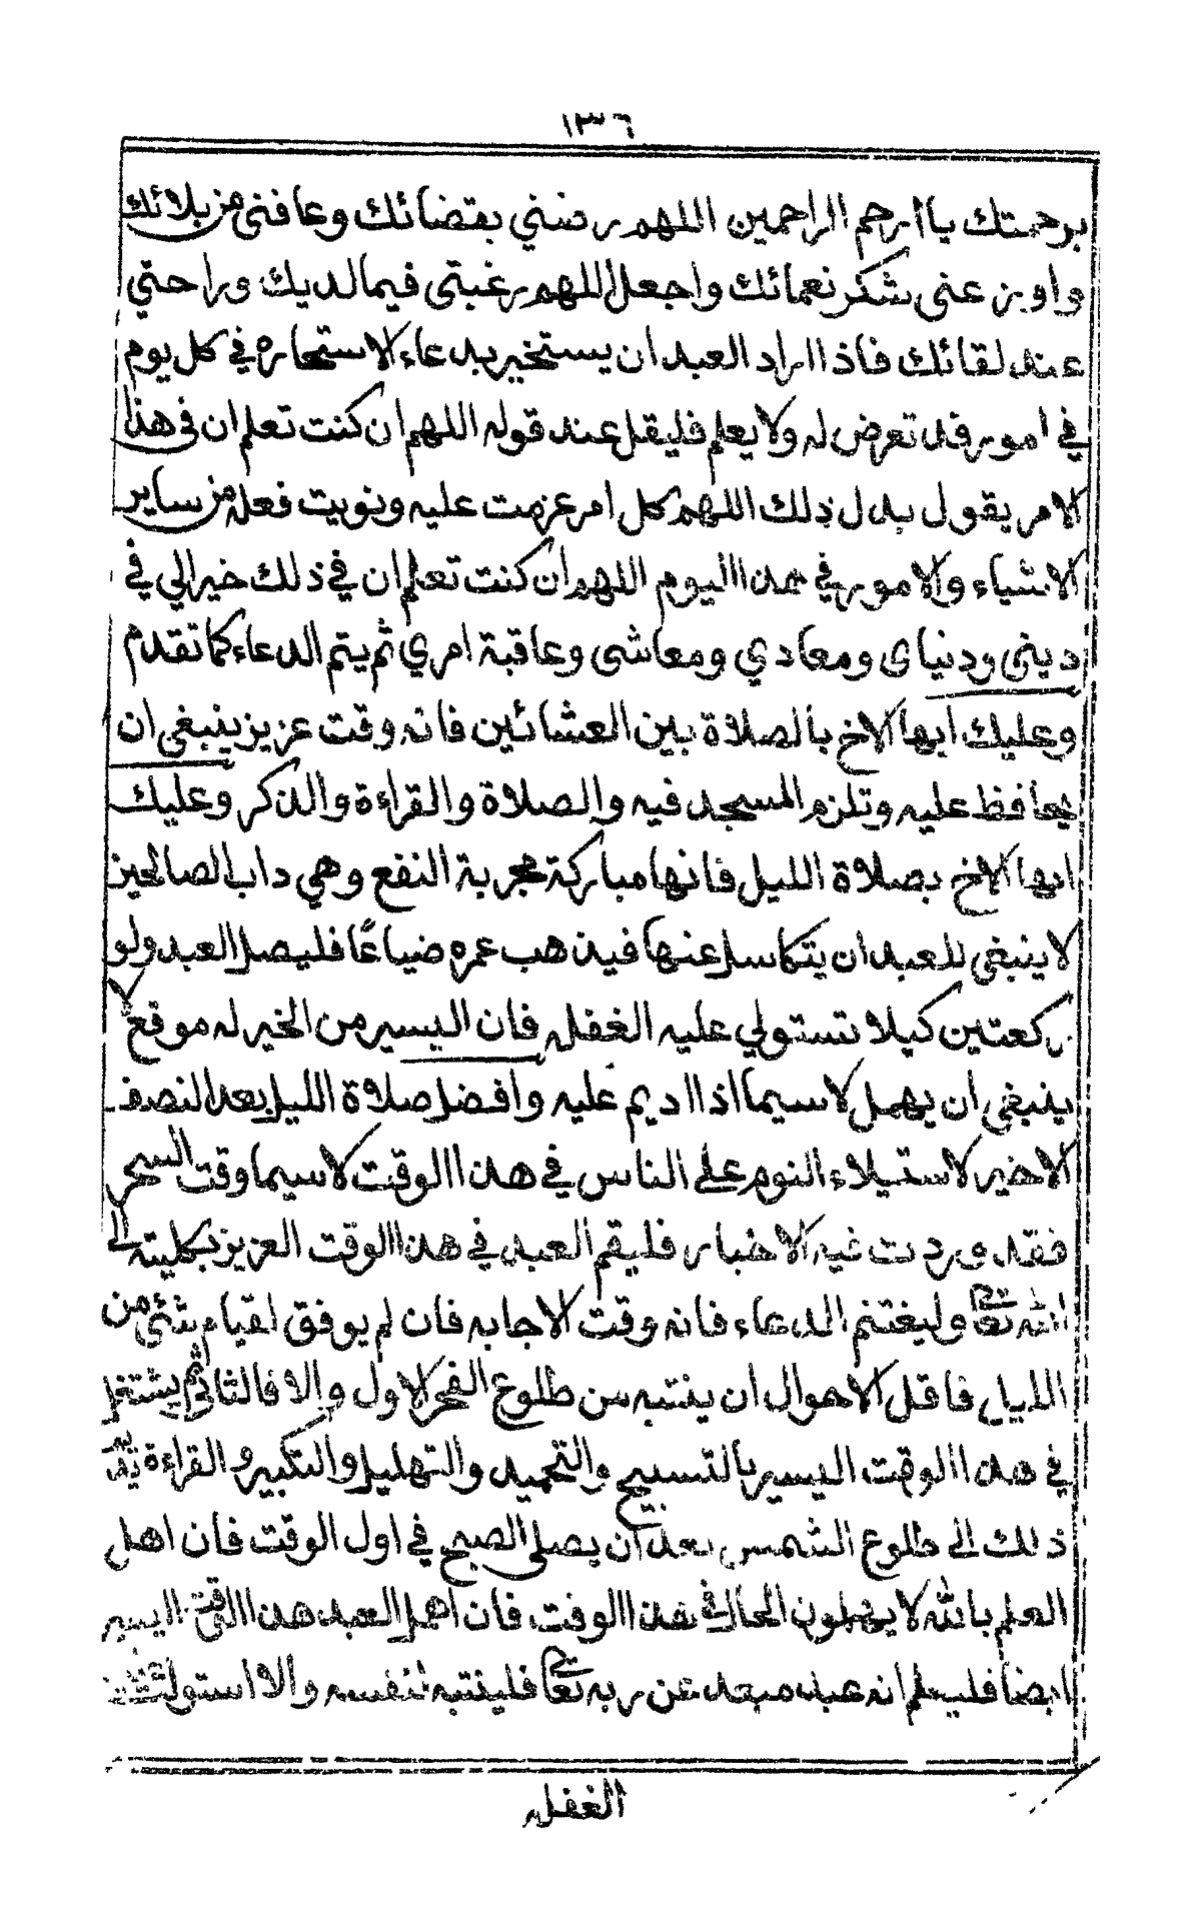 ١٣٦
برحمتك يا ارحم الراحمين اللهم رضني بقضائك وعافنى من بلائك
واوزعنى شكر نعمائك واجعل اللهم رغبتى فيما لديك وراحتي
عند لقائك فاذا اراد العبد ان يستخير بدعاء الاستخاره في كل يوم
في امور قد تعرض له ولا يعلم فليقل عند قوله اللهم ان كنت تعلم ان فى هذا
الامر يقول بدل ذلك اللهم كل امر عزمت عليه ونويت فعله من ساير
الاشياء والامور في هذا اليوم اللهم ان كنت تعلم ان في ذلك خيرا لي في
دينى ودنياى ومعادي ومعاشى وعاقبة امري ثم يتم الدعاء كما تقدم
وعليك ايها الاخ بالصلاة بين العشائين فانه وقت عزيز ينبغى ان
يحافظ عليه وتلزم المسجد فيه والصلاة والقراءة والذكر وعليك
ايها الاخ بصلاة الليل فانها مباركة مجربة النفع وهي داب الصالحين
لا ينبغى للعبد ان يتكاسل عنها فيذهب عمره ضياعًا فليصل العبد ولو
ركعتين كيلا تستولي عليه الغفله فان اليسير من الخير له موقع لا
ينبغى ان يهمل لا سيما اذا اديم عليه وافضل صلاة الليل بعد النصف
الاخير لاستيلاء النوم على الناس في هذا الوقت لا سيما وقت السحر
فقد وردت فيه الاخبار فليقم العبد في هذا الوقت العزيز بكليته الى
الله تعالى وليغتنم الدعاء فانه وقت الاجابه فان لم يوفق لقيام شئى من
الليل فاقل الاحوال ان ينتبه من طلوع الفجر الاول والا فالثاني ثم يشتغل
في هذا الوقت اليسير بالتسبيح والتحميد والتهليل والتكبير والقراءة
ذلك الى طلوع الشمس بعد ان يصلى الصبح في اول الوقت فان اهل
العلم بالله لا يهملون الحال في هذا الوقت فان اهمل العبد هذا الوقت اليسير
ايضا فليعلم انه عبد مبعد عن ربه تعالى فلينتبه لنفسه والا استولت
الغفله